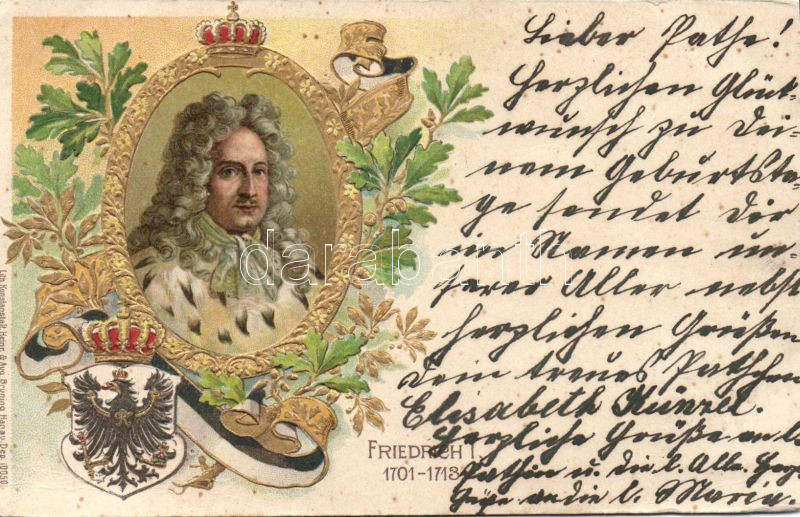 Lieber Pathe!
Herzlichen Glück-
wunsch zu Dei-
nem Geburtsta-
ge sendet Dir
im Namen un-
serer Aller nebst
herzlichen Grüßen
Dein treues Pathchen
Elisabeth Künzel.
Herzliche Grüße an l.
Pathin u. die l. Alle. Herz.
Grüße an die l. Maria.
FRIEDRICH I.
1701-1713
Lith. Kunstanstalt Heinr. & Aug. Brüning, Hanau. Dep. 10050
darabanth